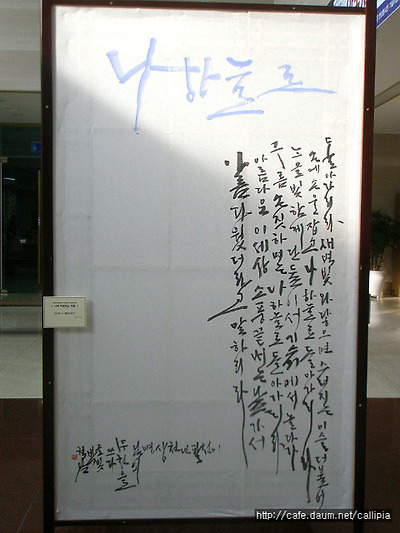 나 하늘로
돌아가리라 새벽빛 와 닿으면 스러지는 이슬 더불어
손에 손을 잡고 나 하늘로 돌아가리라
노을빛 함께 단둘이서 기슭에서 놀다가
구름 손짓하면은 나 하늘로 돌아가리라
아름다운 이세상 소풍 끝내는 날 가서
아름다웠더라고 말하리라
님의
귀천을
쓰다
http://cafe.daum.net/callipia